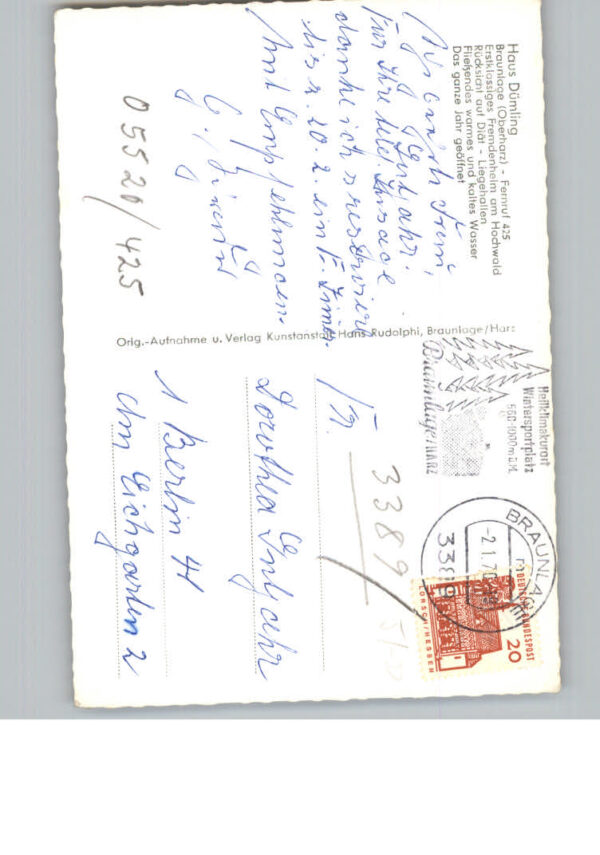 Haus Dümling
Braunlage (Oberharz) - Fernruf 425
Erstklassiges Fremdenheim am Hochwald
Rücksicht auf Diät - Liegehallen
Fließendes warmes und kaltes Wasser
Das ganze Jahr geöffnet
Für Ihre
danke ich u. reserviere
bis z. 20. 2. ein E. Zimm.
Mit Empfehlungen
05520/425
Orig.-Aufnahme u. Verlag Kunstanstalt Hans Rudolphi, Braunlage/Harz
Heilklimakurort
Wintersportplatz
560-1000 m ü. M.
Braunlage/HARZ
BRAUNLAGE
-2.1.70
3389
DEUTSCHE BUNDESPOST
20
LORSCH/HESSEN
3389
Fr.
Dorothea
1 Berlin 41
Am Eichgarten 2